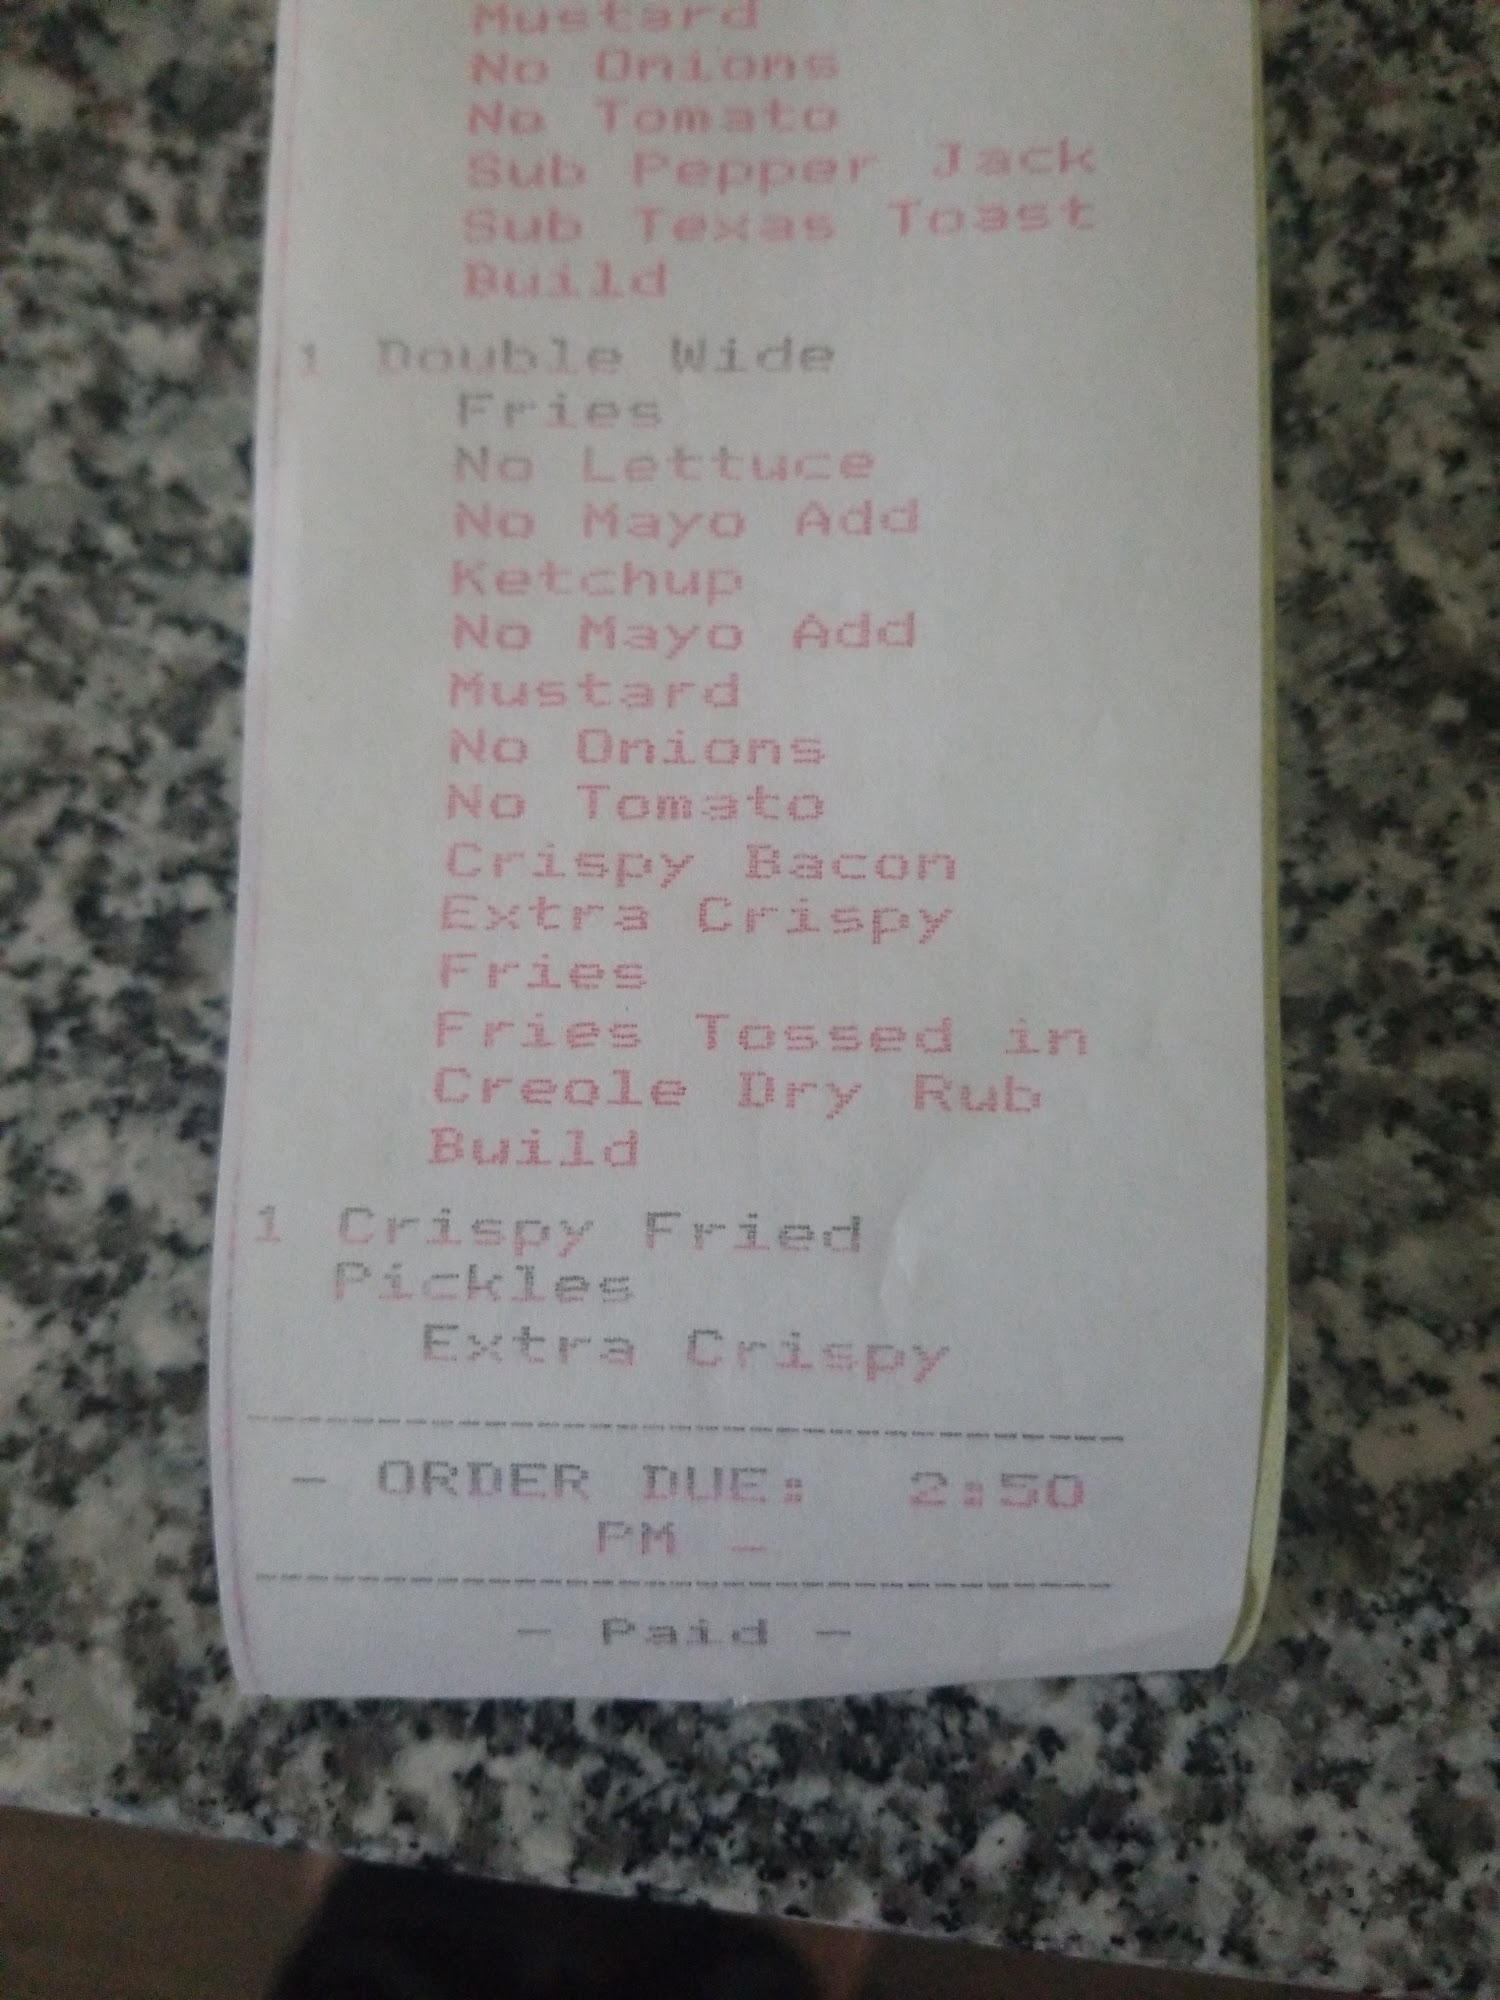 Mustard
No Onions
No Tomato
Sub Pepper Jack
Sub Texas Toast
Build
1 Double Wide
Fries
No Lettuce
No Mayo Add
Ketchup
No Mayo Add
Mustard
No Onions
No Tomato
Crispy Bacon
Extra Crispy
Fries
Fries Tossed in
Creole Dry Rub
Build
1 Crispy Fried
Pickles
Extra Crispy
- ORDER DUE: 2:50
PM -
- Paid -